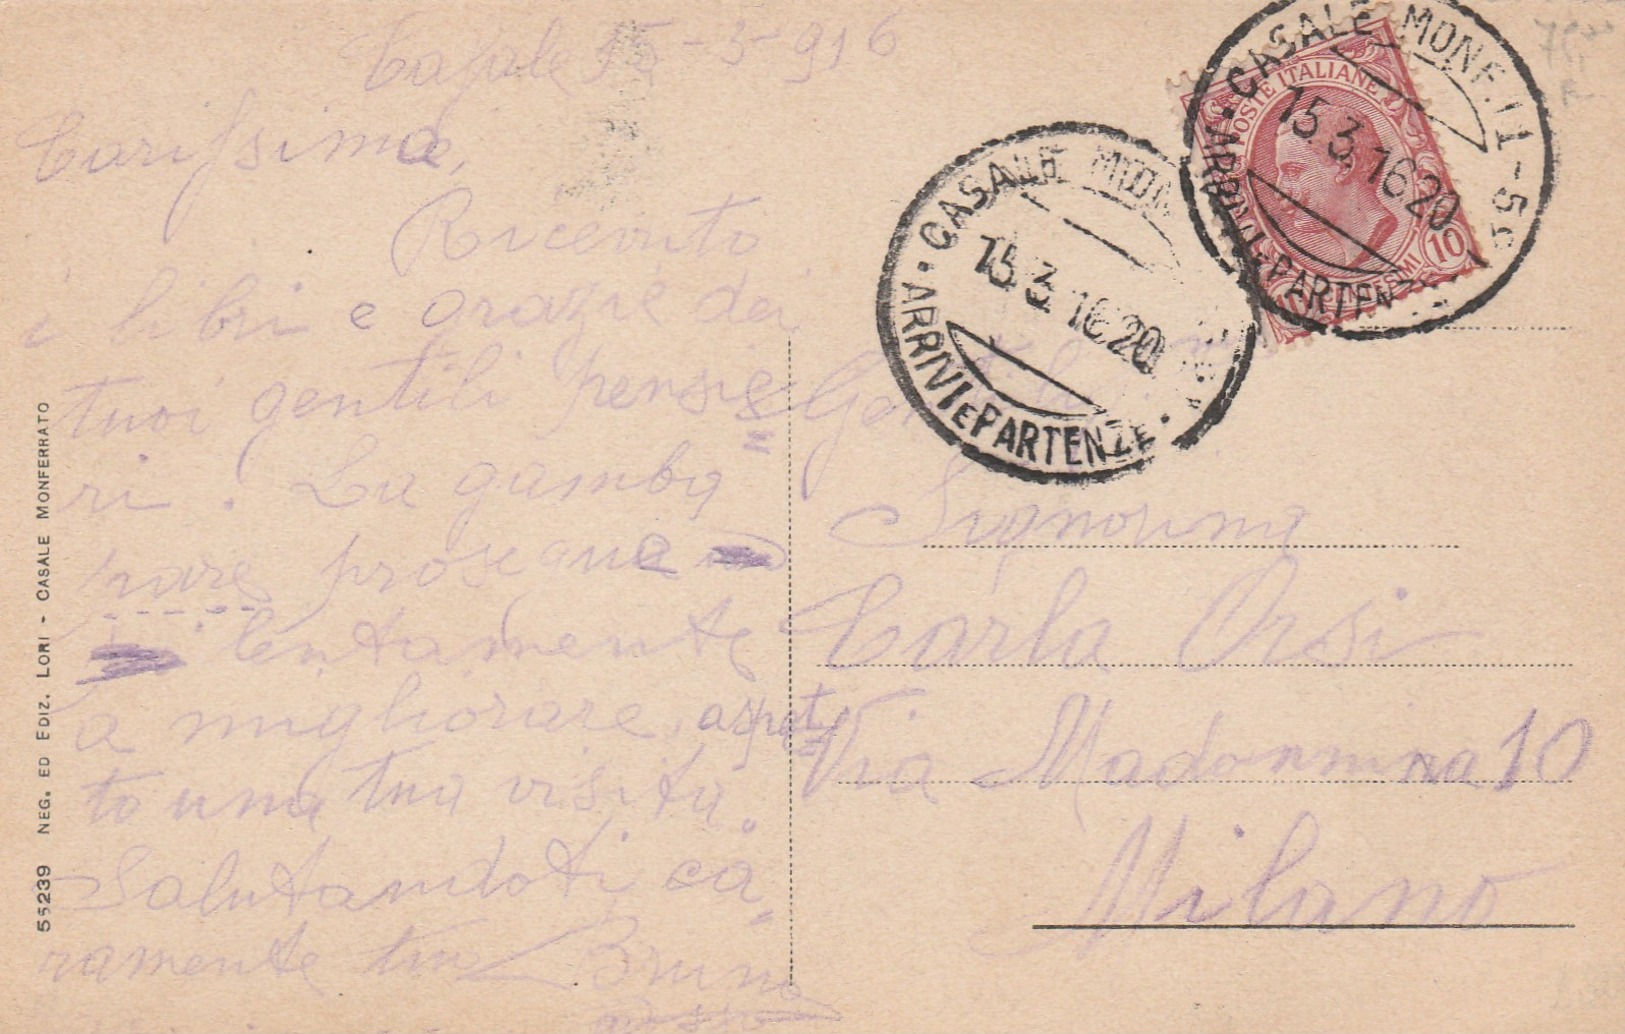 Casale 15-3-916
Carissima,
Ricevuto
i libri e grazie dei
tuoi gentili pensie=
ri. La gamba
pare prosegue
lentamente
a migliorare, aspet=
to una tua visita.
Salutandoti ca=
ramente tuo Bruno
Signorina
Carla Orsi
Via Madonnina 10
Milano
CASALE MONF.
15.3.16.20
ARRIVI E PARTENZE
CASALE MONF.
15.3.16 20
ARRIVI E PARTENZE
POSTE ITALIANE
10
55239 NEG. ED EDIZ. LORI - CASALE MONFERRATO